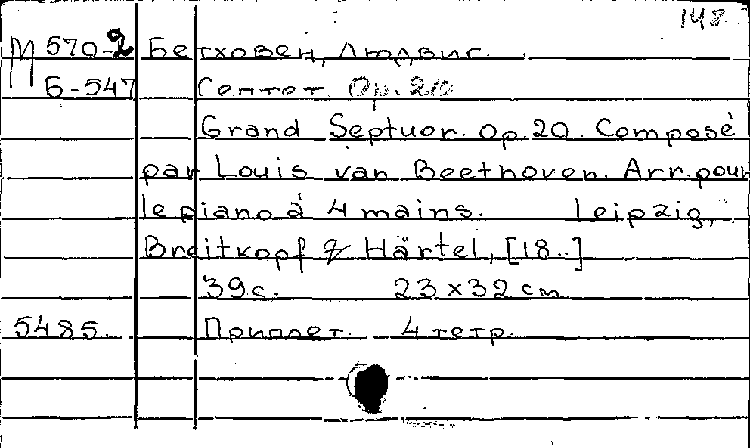 148.
М 570-2 Бетховен, Людвиг.
Б-547 Септет. Op. 20
Grand Septuor. Op. 20. Composé
par Louis van Beethoven. Arr. pour
le piano à 4 mains. Leipzig,
Breitkopf & Härtel, [18..]
39 с. 23 x 32 см
5485. Приплет. 4 тетр.